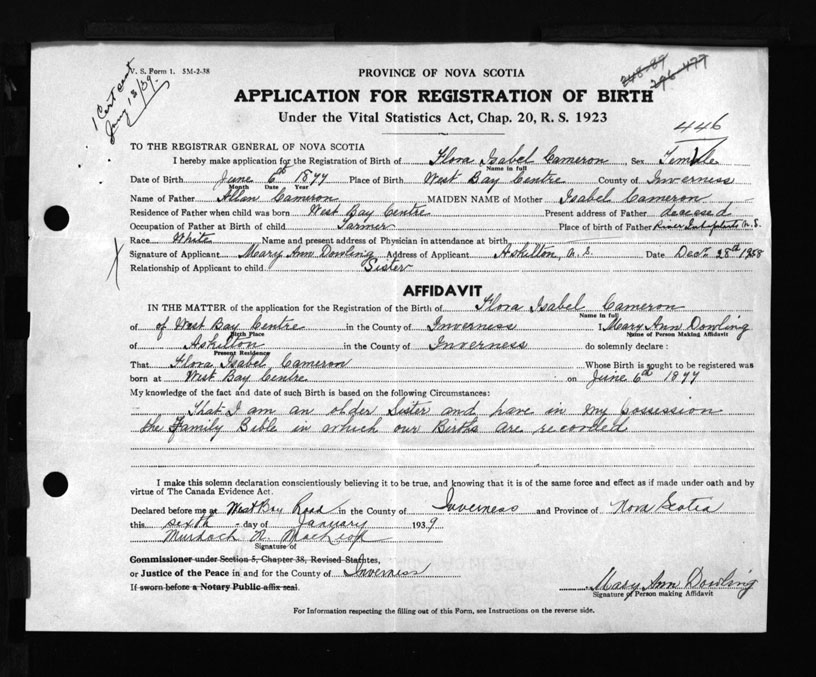 V. S. Form 1. 5M-2-38
1 Cert sent
Jany 13/39.
PROVINCE OF NOVA SCOTIA
296-477
APPLICATION FOR REGISTRATION OF BIRTH
Under the Vital Statistics Act, Chap. 20, R. S. 1923
446
TO THE REGISTRAR GENERAL OF NOVA SCOTIA
I hereby make application for the Registration of Birth of Flora Isabel Cameron Sex Female
Name in full
Date of Birth June 6th 1877 Place of Birth West Bay Centre County of Inverness
Month Date Year
Name of Father Allan Cameron MAIDEN NAME of Mother Isabel Cameron
Residence of Father when child was born West Bay Centre Present address of Father deacesed
Occupation of Father at Birth of child Farmer Place of birth of Father River Inhabitants N.S.
Race White Name and present address of Physician in attendance at birth
Signature of Applicant Mary Ann Dowling Address of Applicant Askilton, N.S. Date Decr 28th 1938
Relationship of Applicant to child Sister
AFFIDAVIT
IN THE MATTER of the application for the Registration of the Birth of Flora Isabel Cameron
Name in full
of of West Bay Centre in the County of Inverness I Mary Ann Dowling
Birth Place Name of Person Making Affidavit
of Askilton in the County of Inverness do solemnly declare:
Present Residence
That Flora Isabel Cameron Whose Birth is sought to be registered was
born at West Bay Centre on June 6th 1877
My knowledge of the fact and date of such Birth is based on the following Circumstances:
That I am an older Sister and have in my possession
the Family Bible in which our Births are recorded
I make this solemn declaration conscientiously believing it to be true, and knowing that it is of the same force and effect as if made under oath and by
virtue of The Canada Evidence Act.
Declared before me at West Bay Road in the County of Inverness and Province of Nova Scotia
this sixth day of January 1939
Murdoch N. MacLeod
Signature of
Commissioner under Section 5, Chapter 38, Revised Statutes,
or Justice of the Peace in and for the County of Inverness
If sworn before a Notary Public affix seal.
Mary Ann Dowling
Signature of Person making Affidavit
For Information respecting the filling out of this Form, see Instructions on the reverse side.